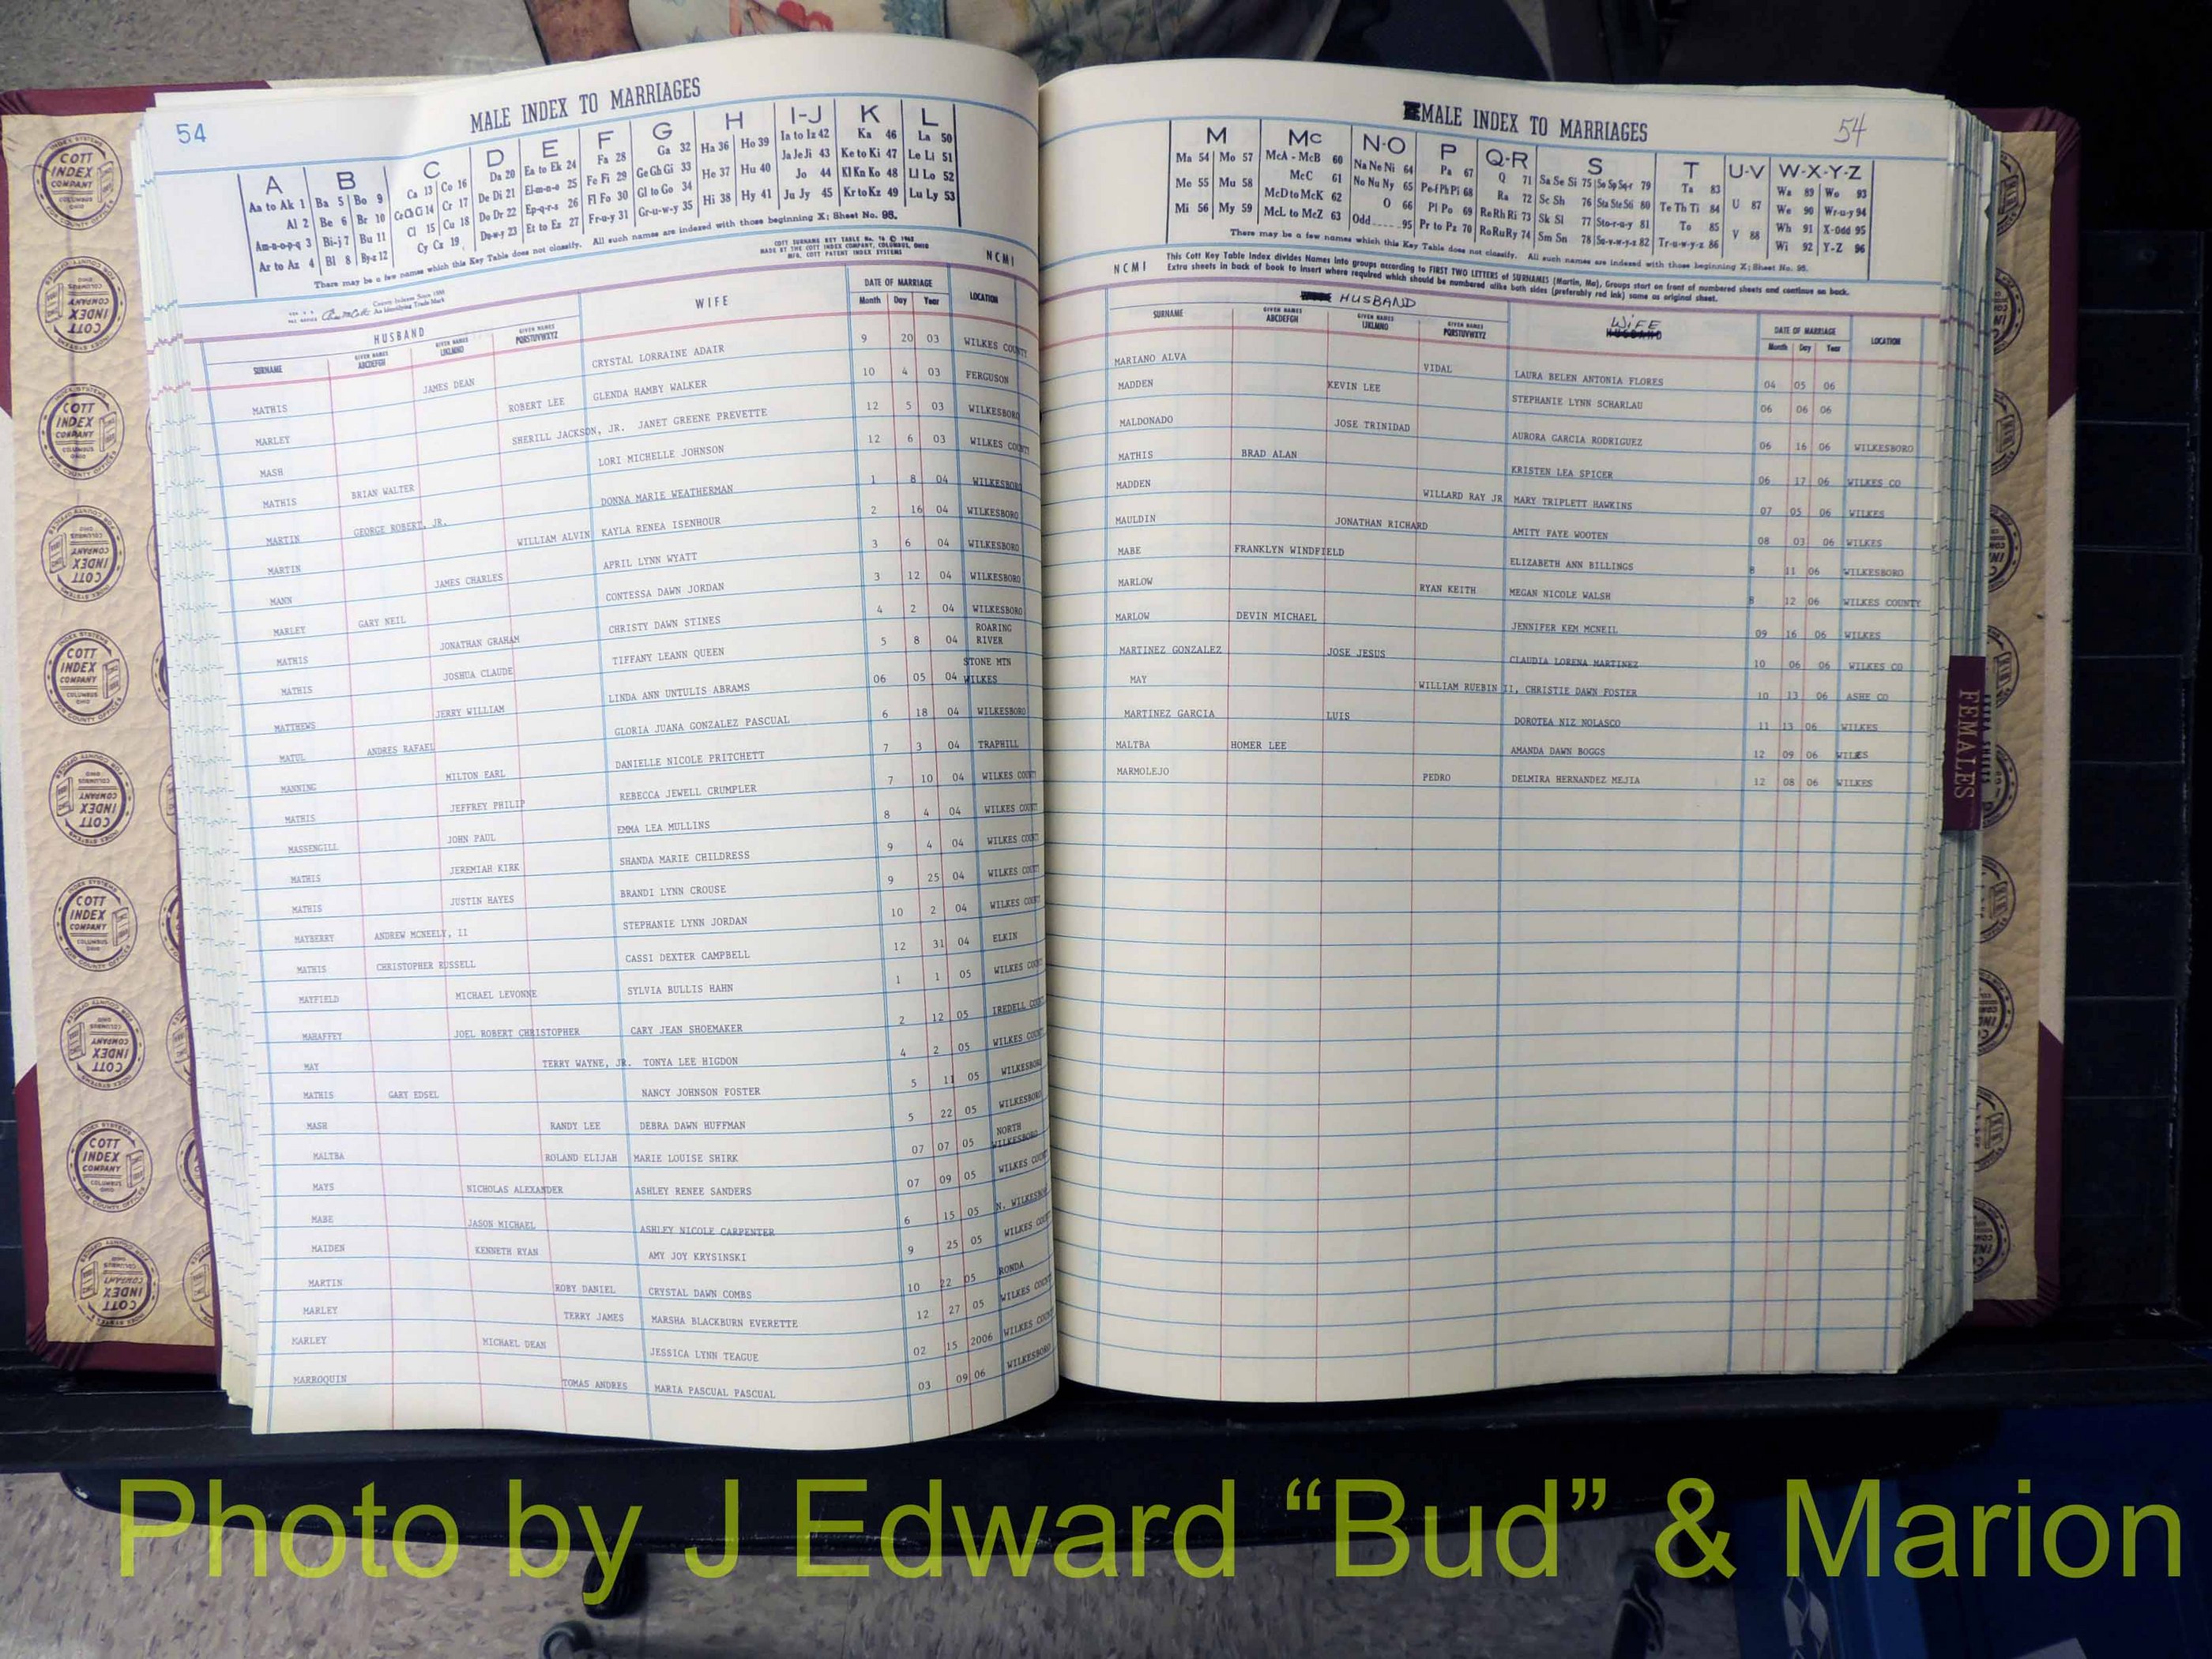 54
MALE INDEX TO MARRIAGES
A B C D E F G H I-J K L
Aa to Ak 1 Ba 5 Bo 9 Ca 13 Co 16 Da 20 Ea to Ek 24 Fa 28 Ga 32 Ha 36 Ho 39 Ia to Iz 42 Ka 46 La 50
Al 2 Be 6 Br 10 Ce Ch Ci 14 Cr 17 De Di 21 El-m-n-o 25 Fe Fi 29 Ge Gh Gi 33 He 37 Hu 40 Ja Je Ji 43 Ke to Ki 47 Le Li 51
Am-n-o-p-q 3 Bi-j 7 Bu 11 Cl 15 Cu 18 Do Dr 22 Ep-q-r-s 26 Fl Fo 30 Gl to Go 34 Hi 38 Hy 41 Jo 44 Kl Kn Ko 48 Ll Lo 52
Ar to Az 4 Bl 8 By-z 12 Cy Cz 19 Du-w-y 23 Et to Ez 27 Fr-u-y 31 Gr-u-w-y 35 Ju Jy 45 Kr to Kz 49 Lu Ly 53
There may be a few names which this Key Table does not classify. All such names are indexed with those beginning X; Sheet No. 95.
COTT SURNAME KEY TABLE No. 96 © 1962
MADE BY THE COTT INDEX COMPANY, COLUMBUS, OHIO
MFG. COTT PATENT INDEX SYSTEMS
NCMI
County Indexes Since 1888
An Identifying Trade Mark
HUSBAND WIFE DATE OF MARRIAGE LOCATION
SURNAME GIVEN NAMES ABCDEFGH GIVEN NAMES IJKLMNO GIVEN NAMES PQRSTUVWXYZ Month Day Year
MATHIS JAMES DEAN CRYSTAL LORRAINE ADAIR 9 20 03 WILKES COUNTY
MARLEY ROBERT LEE GLENDA HAMBY WALKER 10 4 03 FERGUSON
MASH SHERILL JACKSON, JR. JANET GREENE PREVETTE 12 5 03 WILKESBORO
MATHIS BRIAN WALTER LORI MICHELLE JOHNSON 12 6 03 WILKES COUNTY
MARTIN GEORGE ROBERT, JR. DONNA MARIE WEATHERMAN 1 8 04 WILKESBORO
MARTIN WILLIAM ALVIN KAYLA RENEA ISENHOUR 2 16 04 WILKESBORO
MANN JAMES CHARLES APRIL LYNN WYATT 3 6 04 WILKESBORO
MARLEY GARY NEIL CONTESSA DAWN JORDAN 3 12 04 WILKESBORO
MATHIS JONATHAN GRAHAM CHRISTY DAWN STINES 4 2 04 WILKESBORO
MATHIS JOSHUA CLAUDE TIFFANY LEANN QUEEN 5 8 04 ROARING RIVER
MATTHEWS JERRY WILLIAM LINDA ANN UNTULIS ABRAMS 06 05 04 STONE MTN WILKES
MATUL ANDRES RAFAEL GLORIA JUANA GONZALEZ PASCUAL 6 18 04 WILKESBORO
MANNING MILTON EARL DANIELLE NICOLE PRITCHETT 7 3 04 TRAPHILL
MATHIS JEFFREY PHILIP REBECCA JEWELL CRUMPLER 7 10 04 WILKES COUNTY
MASSENGILL JOHN PAUL EMMA LEA MULLINS 8 4 04 WILKES COUNTY
MATHIS JEREMIAH KIRK SHANDA MARIE CHILDRESS 9 4 04 WILKES COUNTY
MATHIS JUSTIN HAYES BRANDI LYNN CROUSE 9 25 04 WILKES COUNTY
MAYBERRY ANDREW MCNEELY, II STEPHANIE LYNN JORDAN 10 2 04 WILKES COUNTY
MATHIS CHRISTOPHER RUSSELL CASSI DEXTER CAMPBELL 12 31 04 ELKIN
MAYFIELD MICHAEL LEVONNE SYLVIA BULLIS HAHN 1 1 05 WILKES COUNTY
MAHAFFEY JOEL ROBERT CHRISTOPHER CARY JEAN SHOEMAKER 2 12 05 IREDELL COUNTY
MAY TERRY WAYNE, JR. TONYA LEE HIGDON 4 2 05 WILKES COUNTY
MATHIS GARY EDSEL NANCY JOHNSON FOSTER 5 11 05 WILKESBORO
MASH RANDY LEE DEBRA DAWN HUFFMAN 5 22 05 WILKESBORO
MALTBA ROLAND ELIJAH MARIE LOUISE SHIRK 07 07 05 NORTH WILKESBORO
MAYS NICHOLAS ALEXANDER ASHLEY RENEE SANDERS 07 09 05 WILKES COUNTY
MABE JASON MICHAEL ASHLEY NICOLE CARPENTER 6 15 05 N. WILKESBORO
MAIDEN KENNETH RYAN AMY JOY KRYSINSKI 9 25 05 WILKES COUNTY
MARTIN ROBY DANIEL CRYSTAL DAWN COMBS 10 22 05 RONDA
MARLEY TERRY JAMES MARSHA BLACKBURN EVERETTE 12 27 05 WILKES COUNTY
MARLEY MICHAEL DEAN JESSICA LYNN TEAGUE 02 15 2006 WILKES COUNTY
MARROQUIN TOMAS ANDRES MARIA PASCUAL PASCUAL 03 09 06 WILKESBORO
MALE INDEX TO MARRIAGES
54
M Mc N-O P Q-R S T U-V W-X-Y-Z
Ma 54 Mo 57 McA - McB 60 Na Ne Ni 64 Pa 67 Q 71 Sa Se Si 75 So Sp Sq-r 79 Ta 83 U 87 Wa 89 Wo 93
Me 55 Mu 58 McC 61 No Nu Ny 65 Pe-f Ph Pi 68 Ra 72 Sc Sh 76 Sta Ste Sti 80 Te Th Ti 84 We 90 Wr-u-y 94
Mi 56 My 59 McD to McK 62 O 66 Pl Po 69 Re Rh Ri 73 Sk Sl 77 Sto-r-u-y 81 To 85 V 88 Wh 91 X-Odd 95
McL to McZ 63 Odd 95 Pr to Pz 70 Ro Ru Ry 74 Sm Sn 78 Su-v-w-y-z 82 Tr-u-w-y-z 86 Wi 92 Y-Z 96
There may be a few names which this Key Table does not classify. All such names are indexed with those beginning X; Sheet No. 95.
NCMI
This Cott Key Table Index divides Names into groups according to FIRST TWO LETTERS of SURNAMES (Martin, Ma). Groups start on front of numbered sheets and continue on back.
Extra sheets in back of book to insert where required which should be numbered alike both sides (preferably red ink) same as original sheet.
HUSBAND WIFE DATE OF MARRIAGE LOCATION
SURNAME GIVEN NAMES ABCDEFGH GIVEN NAMES IJKLMNO GIVEN NAMES PQRSTUVWXYZ Month Day Year
MARIANO ALVA VIDAL LAURA BELEN ANTONIA FLORES 04 05 06
MADDEN KEVIN LEE STEPHANIE LYNN SCHARLAU 06 06 06
MALDONADO JOSE TRINIDAD AURORA GARCIA RODRIGUEZ 06 16 06 WILKESBORO
MATHIS BRAD ALAN KRISTEN LEA SPICER 06 17 06 WILKES CO
MADDEN WILLARD RAY JR MARY TRIPLETT HAWKINS 07 05 06 WILKES
MAULDIN JONATHAN RICHARD AMITY FAYE WOOTEN 08 03 06 WILKES
MABE FRANKLYN WINDFIELD ELIZABETH ANN BILLINGS 8 11 06 WILKESBORO
MARLOW RYAN KEITH MEGAN NICOLE WALSH 8 12 06 WILKES COUNTY
MARLOW DEVIN MICHAEL JENNIFER KEM MCNEIL 09 16 06 WILKES
MARTINEZ GONZALEZ JOSE JESUS CLAUDIA LORENA MARTINEZ 10 06 06 WILKES CO
MAY WILLIAM RUEBIN II, CHRISTIE DAWN FOSTER 10 13 06 ASHE CO
MARTINEZ GARCIA LUIS DOROTEA NIZ NOLASCO 11 13 06 WILKES
MALTBA HOMER LEE AMANDA DAWN BOGGS 12 09 06 WILKES
MARMOLEJO PEDRO DELMIRA HERNANDEZ MEJIA 12 08 06 WILKES
FEMALES
COTT INDEX COMPANY
Photo by J Edward “Bud” & Marion